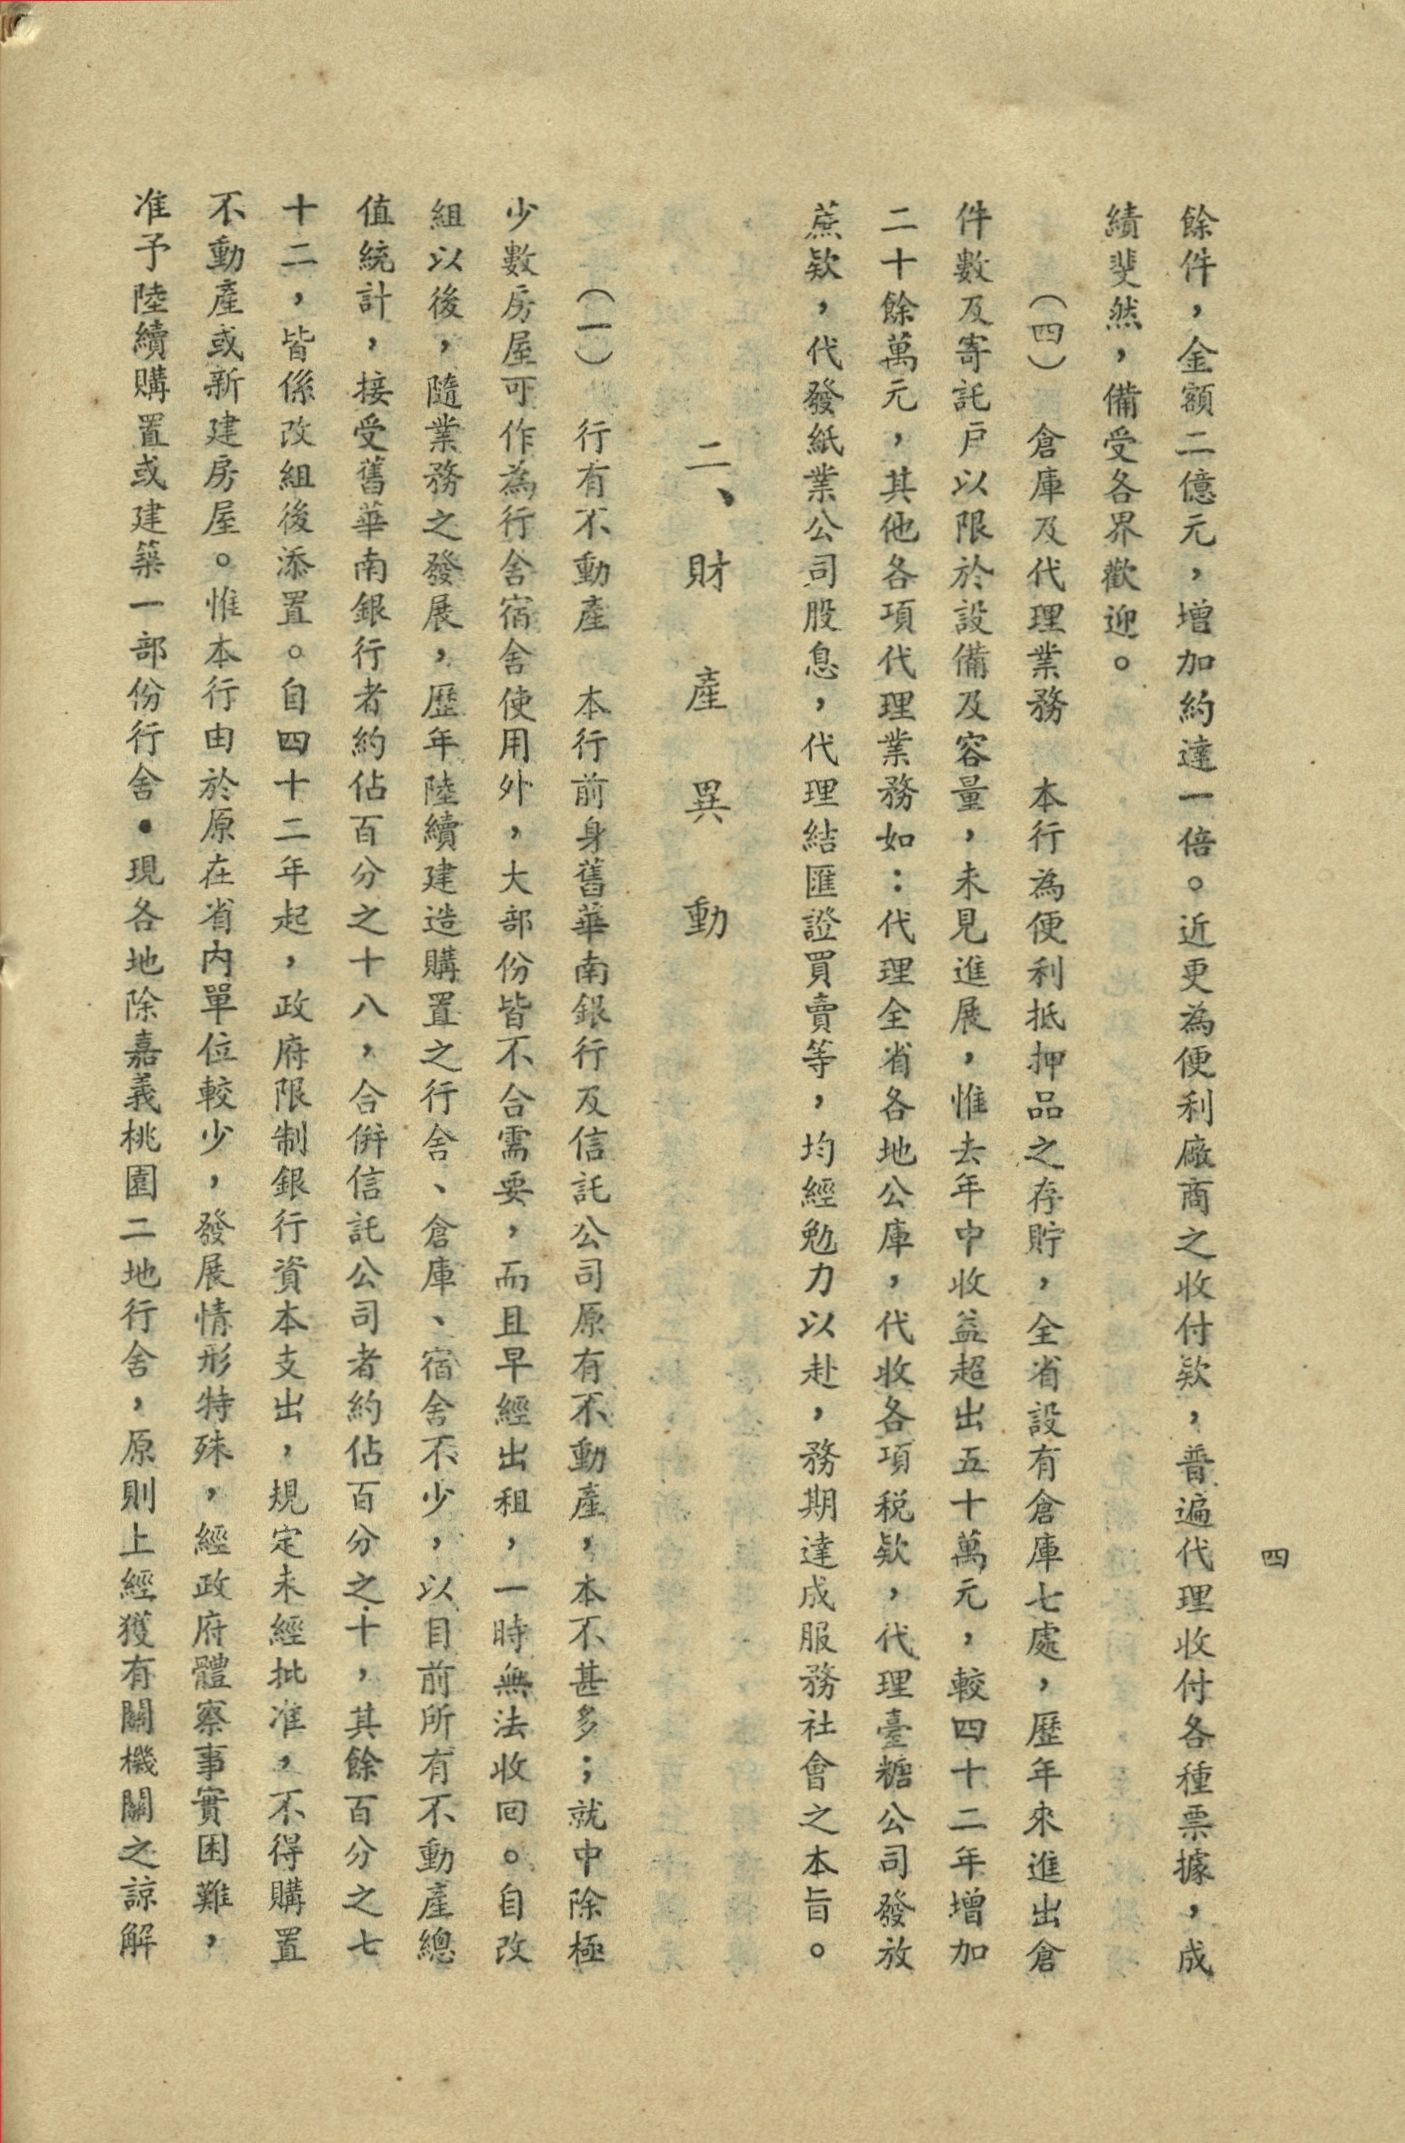 四
餘件，金額二億元，增加約達一倍。近更為便利廠商之收付欵，普遍代理收付各種票據，成
績斐然，備受各界歡迎。
（四）　倉庫及代理業務　本行為便利抵押品之存貯，全省設有倉庫七處，歷年來進出倉
件數及寄託戶以限於設備及容量，未見進展，惟去年中收益超出五十萬元，較四十二年增加
二十餘萬元，其他各項代理業務如：代理全省各地公庫，代收各項稅欵，代理臺糖公司發放
蔗欵，代發紙業公司股息，代理結匯證買賣等，均經勉力以赴，務期達成服務社會之本旨。
二、財產異動
（一）　行有不動產　本行前身舊華南銀行及信託公司原有不動產，本不甚多；就中除極
少數房屋可作為行舍宿舍使用外，大部份皆不合需要，而且早經出租，一時無法收回。自改
組以後，隨業務之發展，歷年陸續建造購置之行舍、倉庫、宿舍不少，以目前所有不動產總
值統計，接受舊華南銀行者約佔百分之十八，合併信託公司者約佔百分之十，其餘百分之七
十二，皆係改組後添置。自四十二年起，政府限制銀行資本支出，規定未經批准，不得購置
不動產或新建房屋。惟本行由於原在省內單位較少，發展情形特殊，經政府體察事實困難，
准予陸續購置或建築一部份行舍・現各地除嘉義桃園二地行舍，原則上經獲有關機關之諒解